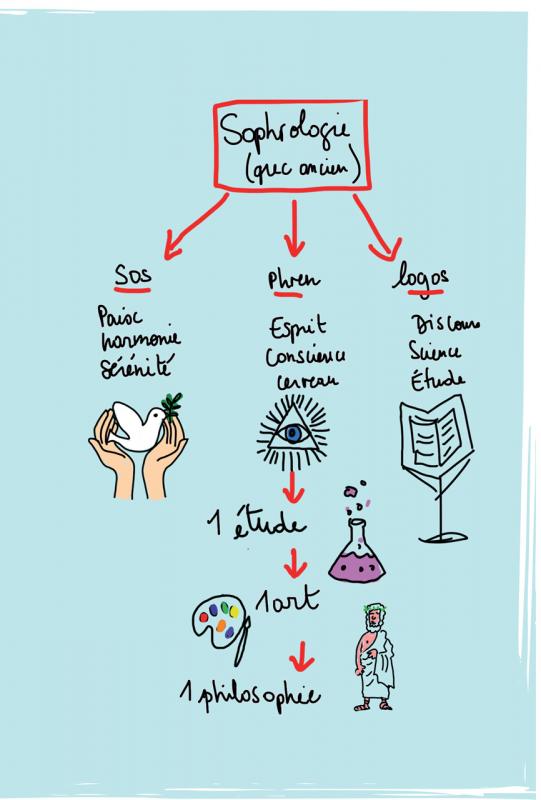 Sophrologie
(grec ancien)
Sos
Phren
logos
Paix
harmonie
sérénité
Esprit
Conscience
cerveau
Discours
Science
Étude
1 étude
1 art
1 philosophie